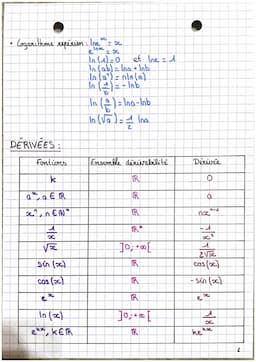 • Logarithme népérien : ln e^x = x
e^ln x = x
ln(1) = 0 et ln e = 1
ln(ab) = ln a + ln b
ln(a^n) = n ln(a)
ln(1/b) = - ln b
ln(a/b) = ln a - ln b
ln(√a) = 1/2 ln a
DÉRIVÉES :
Fonctions Ensemble dérivabilité Dérivée
k ℝ 0
ax, a ∈ ℝ ℝ a
x^n, n ∈ ℕ* ℝ nx^n-1
1/x ℝ* -1/x²
√x ]0, +∞[ 1/2√x
sin(x) ℝ cos(x)
cos(x) ℝ - sin(x)
e^x ℝ e^x
ln(x) ]0, +∞[ 1/x
e^kx, k ∈ ℝ ℝ ke^kx